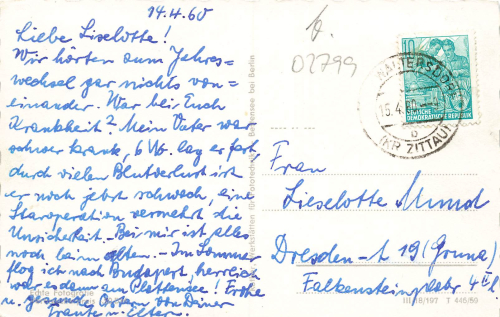 14.4.60
Liebe Lieselotte!
Wir hörten zum Jahres=
wechsel gar nichts von=
einander. War bei Euch
Krankheit? Mein Vater war
schwer krank, 6 Wo. lag er fest,
durch vielen Blutverlust ist
er noch jetzt schwach, eine
Staroperation vermehrt die
Unsicherheit. - Bei mir ist alles
noch beim alten. - Im Sommer
flog ich nach Budapest, herrlich
war es dann am Plattensee! Frohe
u. gesunde Ostern von Deiner
Traute u. Eltern.
02799
10
DEUTSCHE
DEMOKRATISCHE REPUBLIK
15.4.60
b
(KR ZITTAU)
Frau
Lieselotte Mund
Dresden-A 19 (Gruna)
Falkensteinplatz 4 II l
Echte Fotografie
III/18/197 T 446/60